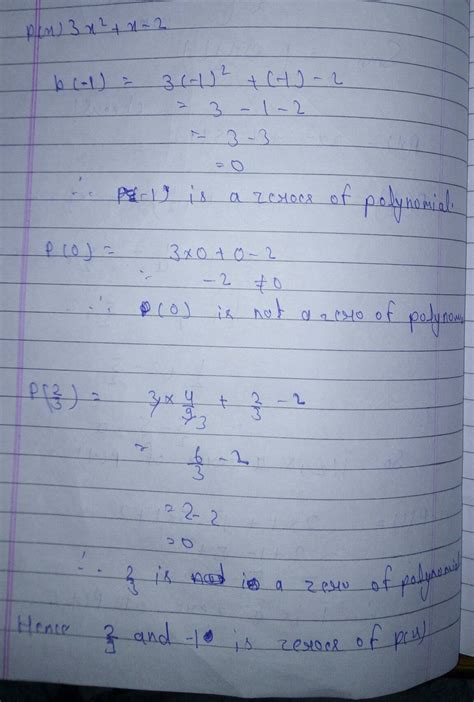 p(x) 3x² + x - 2
b(-1) = 3(-1)² + (-1) - 2
= 3 - 1 - 2
= 3 - 3
= 0
∴ P(-1) is a zeroes of polynomial.
P(0) = 3×0 + 0 - 2
∵ -2 ≠0
∴ P(0) is not a zero of polynom
P(2/3) = 3 × 4/9 3 + 2/3 - 2
= 6/3 - 2
= 2 - 2
= 0
∴ 2/3 is a zero of polynomial
Hence 2/3 and -1 is zeroes of p(x)